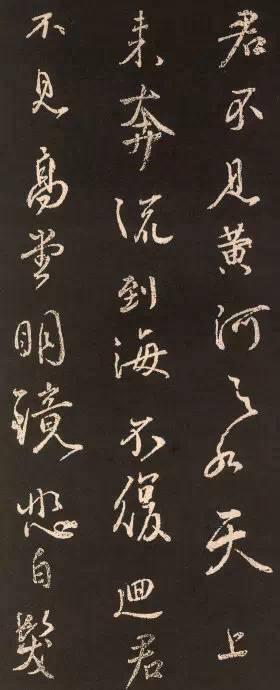 君不見黃河之水天上
来奔流到海不復迴君
不見高堂明鏡悲自髮